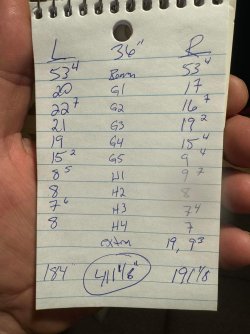 L 36" R
53⁴ Beam 53⁴
20 G1 17
22⁷ G2 16⁷
21 G3 19²
19 G4 15⁴
15² G5 9⁴
8⁵ H1 9
8 H2 8
7⁶ H3 7⁴
8 H4 7
extra 19, 9³
184" 411 1/8" 191 1/8